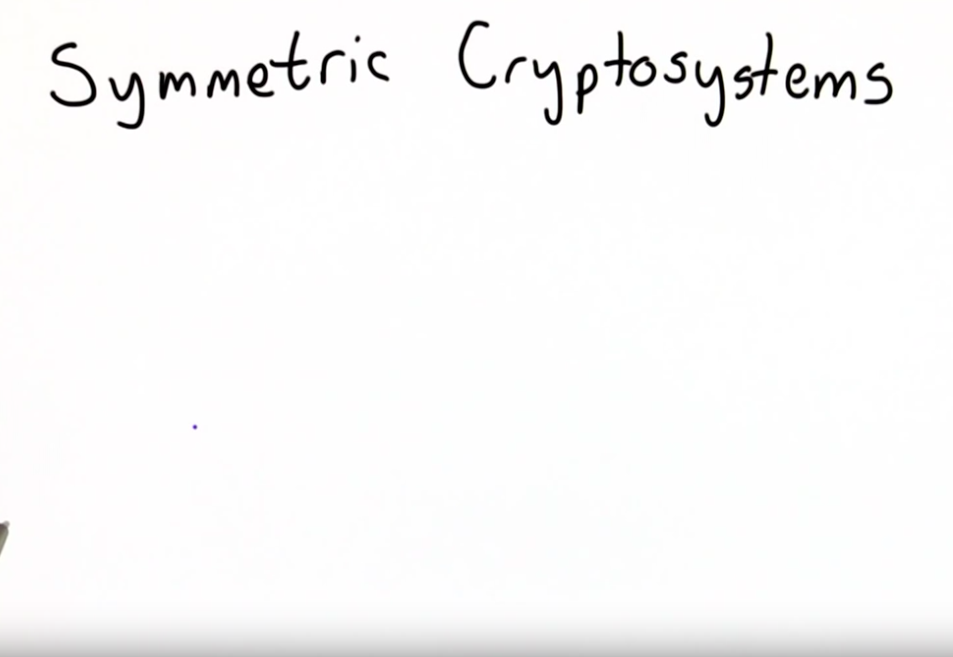 Symmetric Cryptosystems